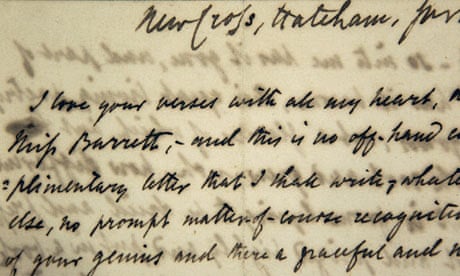 New Cross, Hatcham, Sur
I love your verses with all my heart, d
Miss Barrett,- and this is no off-hand co
=plimentary letter that I shall write,-whate
else, no prompt matter-of-course recognitio
of your genius and there a graceful and n